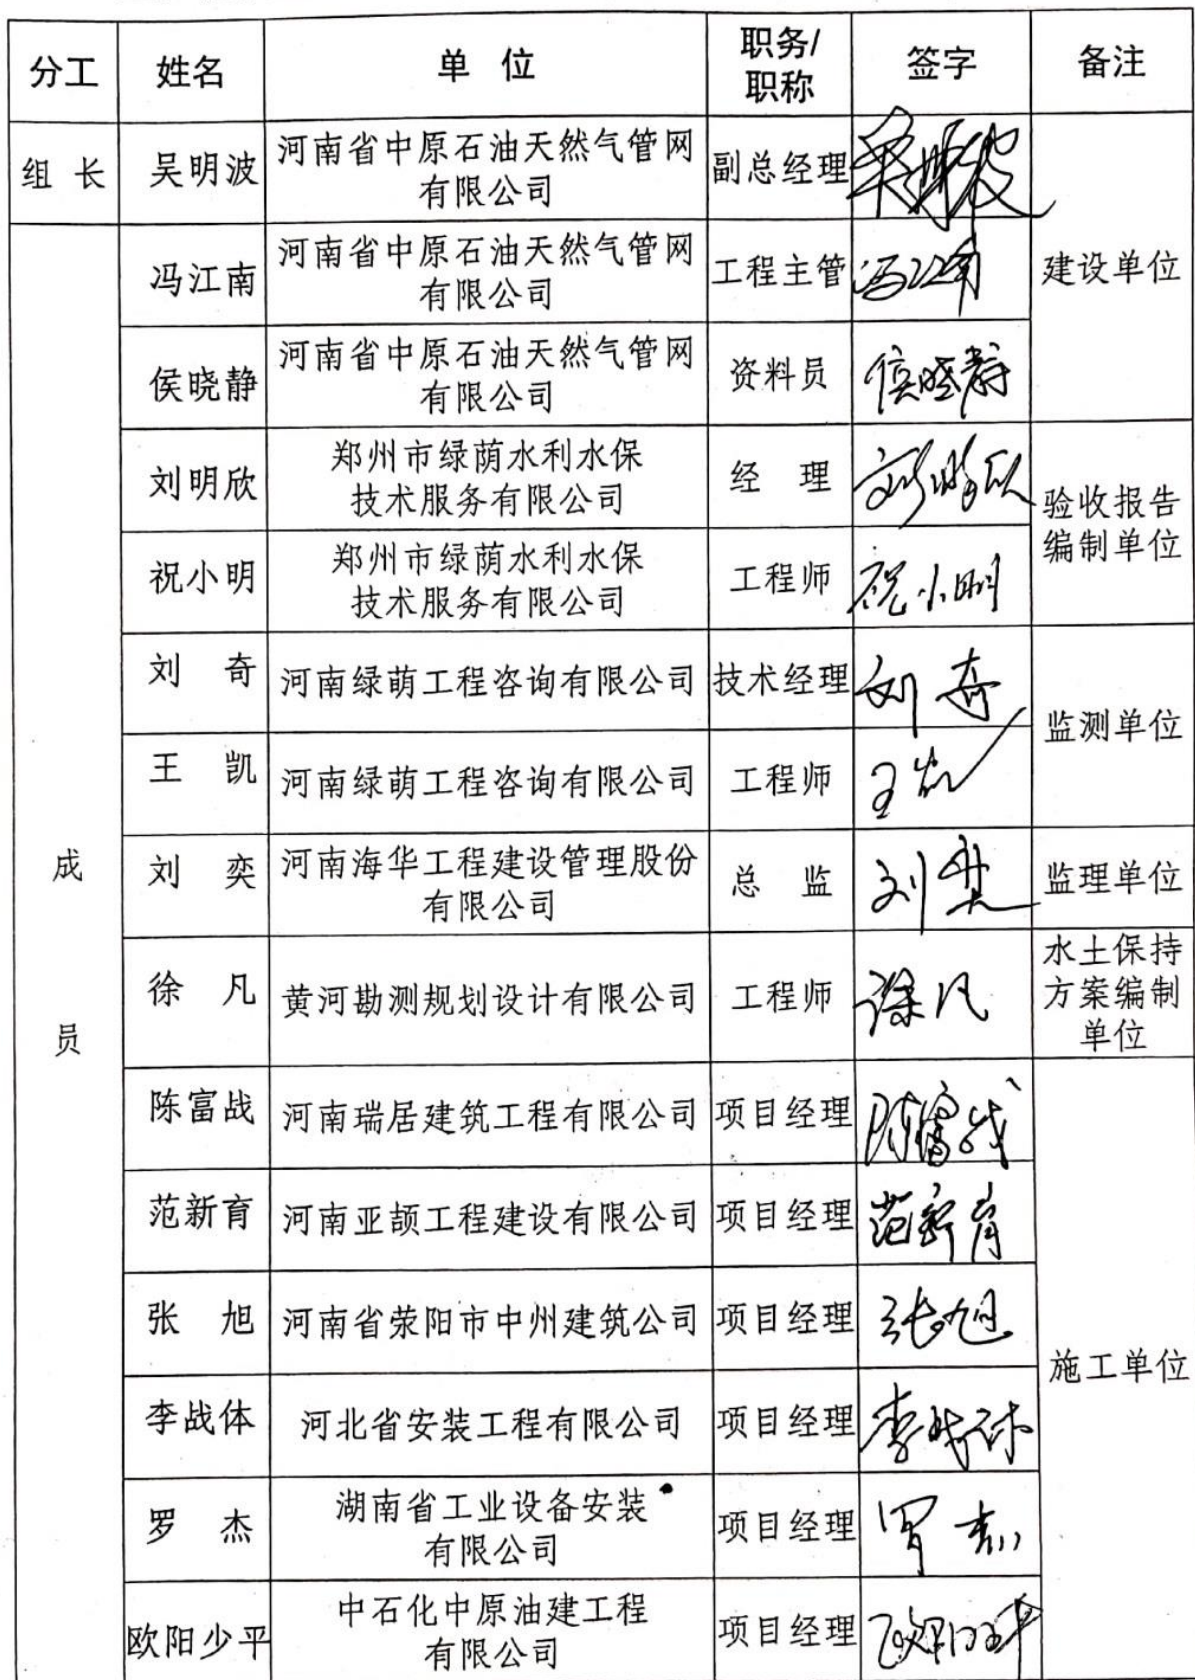 分工 姓名 单 位 职务/职称 签字 备注
组 长 吴明波 河南省中原石油天然气管网
有限公司 副总经理 吴明波 建设单位
成员
冯江南 河南省中原石油天然气管网
有限公司 工程主管 冯江南
侯晓静 河南省中原石油天然气管网
有限公司 资料员 侯晓静
刘明欣 郑州市绿荫水利水保
技术服务有限公司 经 理 刘明欣 验收报告
编制单位
祝小明 郑州市绿荫水利水保
技术服务有限公司 工程师 祝小明
刘 奇 河南绿萌工程咨询有限公司 技术经理 刘奇 监测单位
王 凯 河南绿萌工程咨询有限公司 工程师 王凯
刘 奕 河南海华工程建设管理股份
有限公司 总 监 刘奕 监理单位
徐 凡 黄河勘测规划设计有限公司 工程师 徐凡 水土保持
方案编制
单位
陈富战 河南瑞居建筑工程有限公司 项目经理 陈富战 施工单位
范新育 河南亚颉工程建设有限公司 项目经理 范新育
张 旭 河南省荥阳市中州建筑公司 项目经理 张旭
李战体 河北省安装工程有限公司 项目经理 李战体
罗 杰 湖南省工业设备安装
有限公司 项目经理 罗杰
欧阳少平 中石化中原油建工程
有限公司 项目经理 欧阳少平